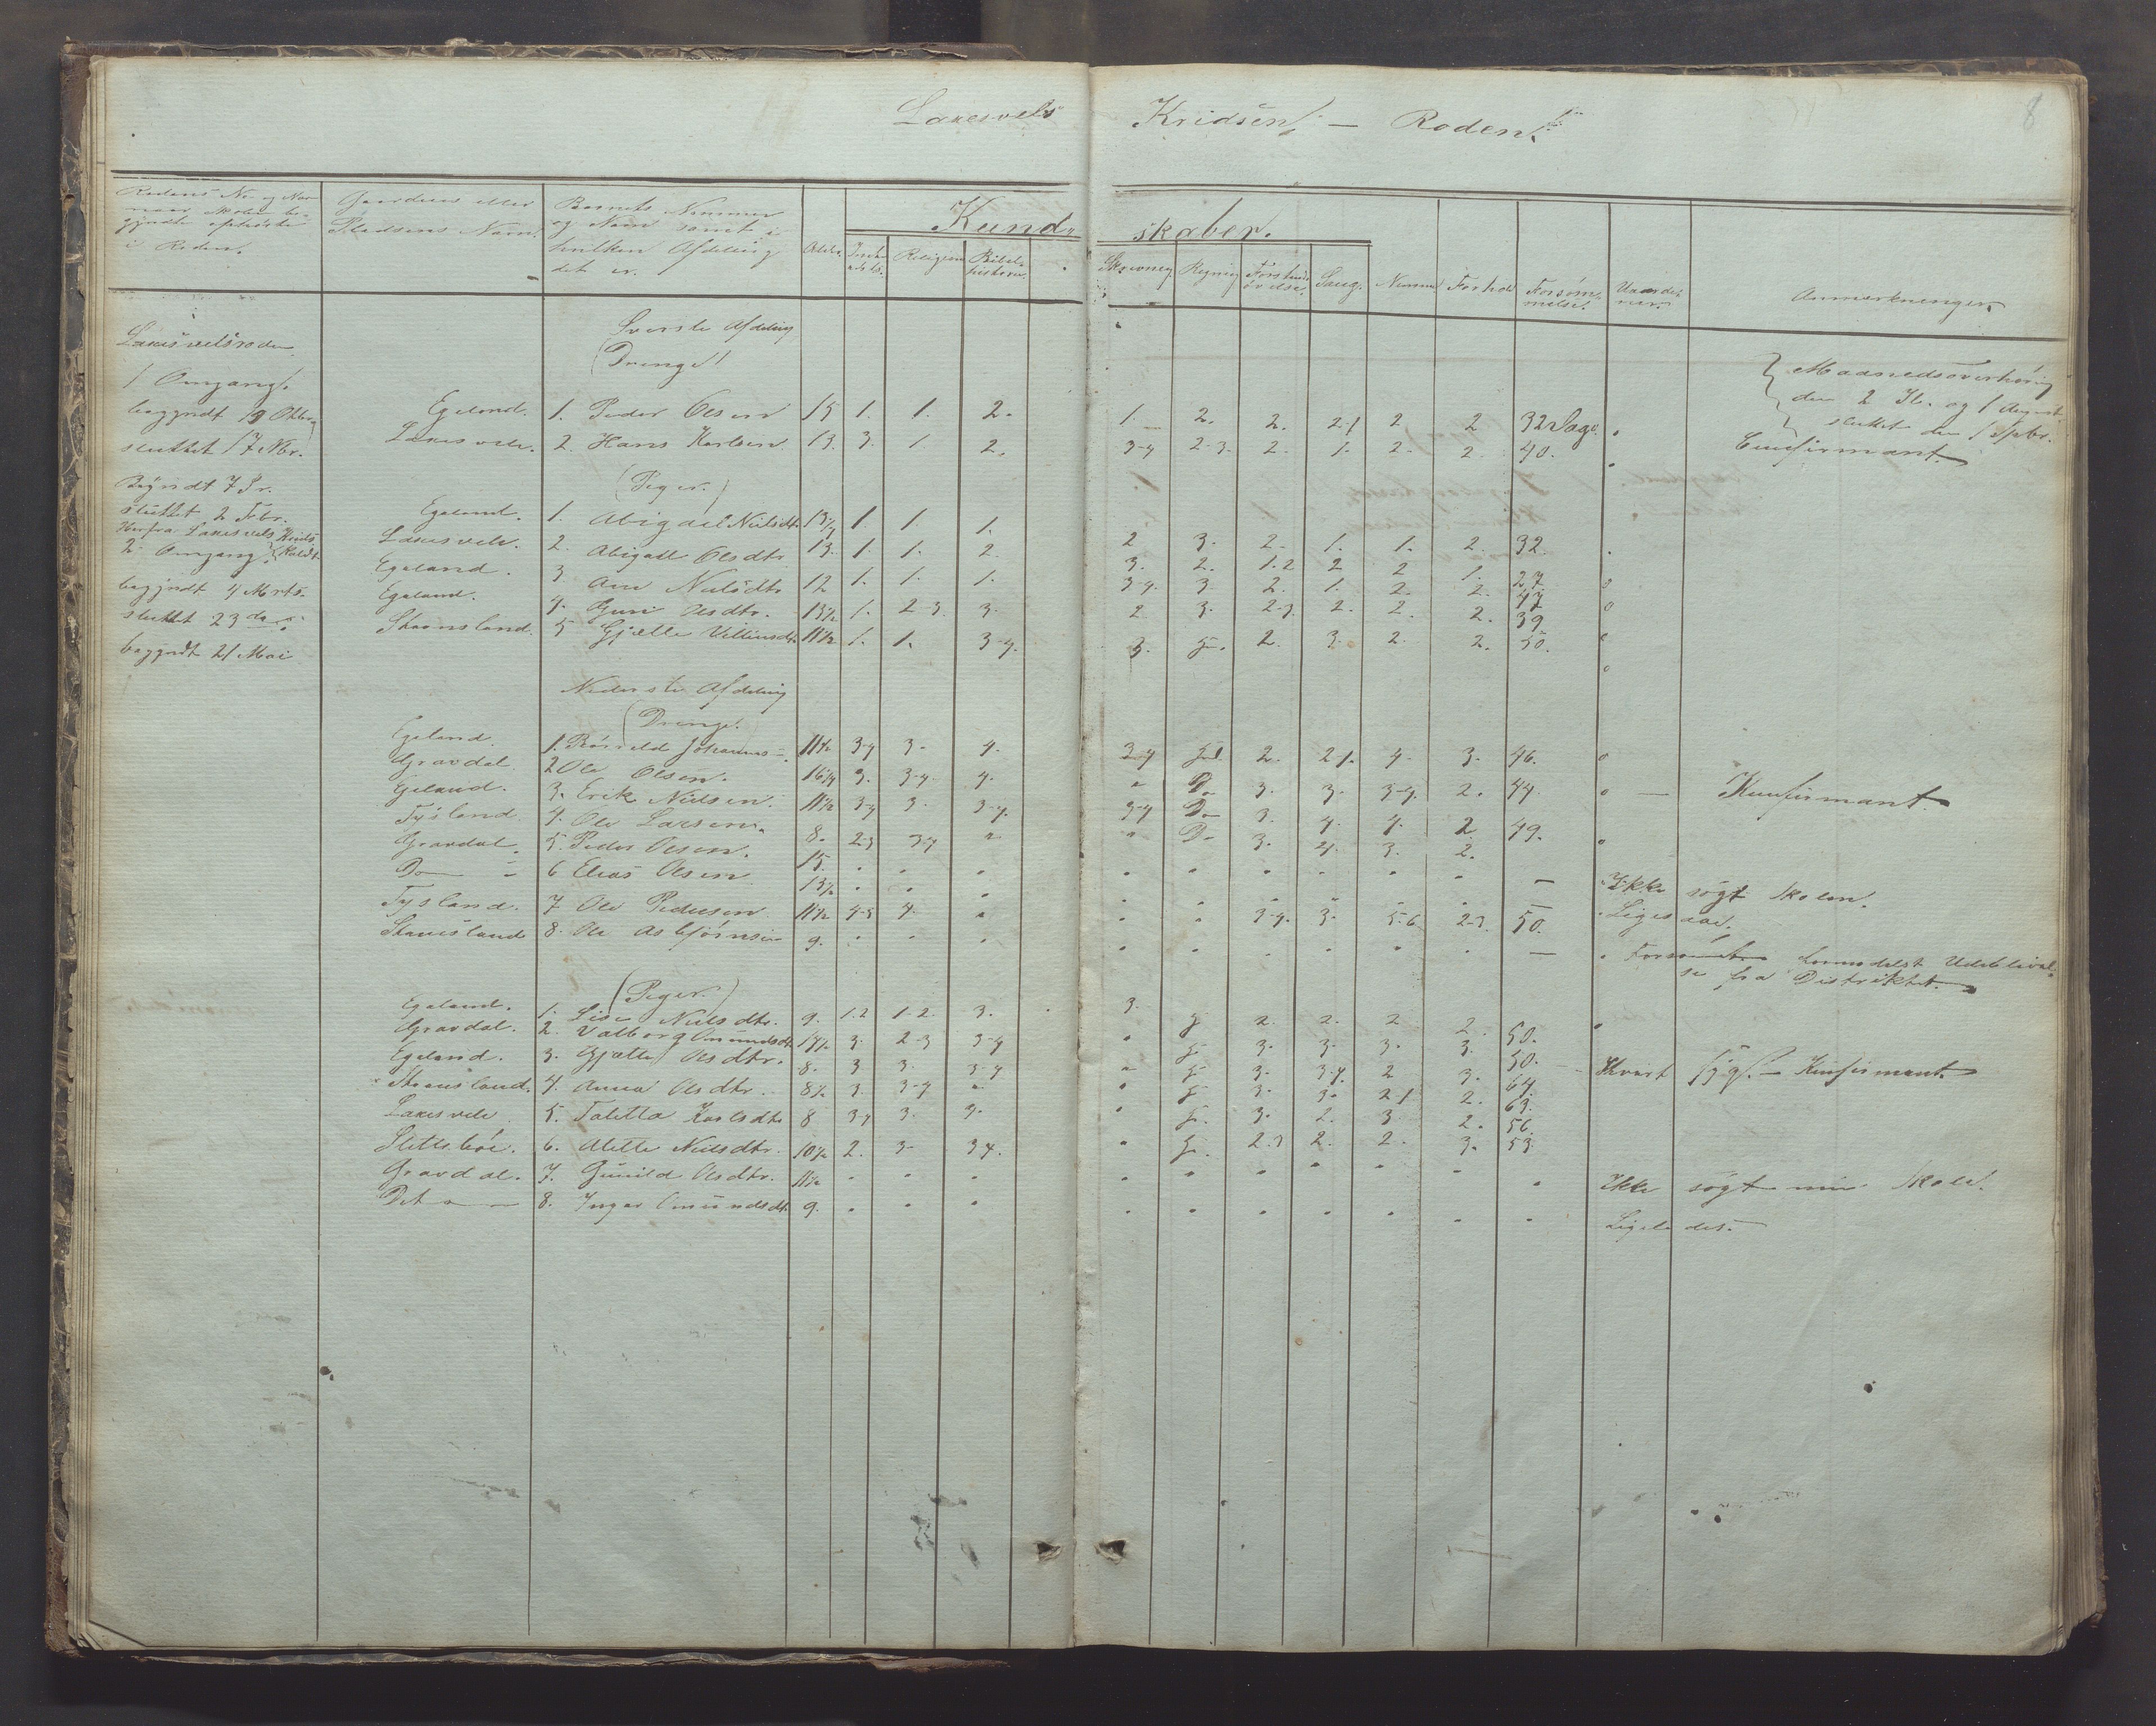 Laxesvels Kridsen — Roden.
8
Rodens No og Naar
naar Skolen be-
gyndte
i Roden.
Gaardens eller
Pladsens Navn.
Barnets Nummer
og Navn samt i
hvilken Afdeling
det er.
Alder.
Kund- skaber.
Religion
Bibel-
historie
Skrivning
Regning
Forstands-
øvelse.
Sang.
Nemme
Forhold
Forsøm-
melse.
Anmærkninger.
Laxesvelsroden
1 Omgang.
begyndt 19 Oktbr.
sluttet 17 Nbr.
Begyndt 7 Jr.
sluttet 2 Febr.
Herfra Laxesvels Krids
2 Omgang. Kaldt
begyndt 4 Marts.
sluttet 23 do
begyndt 21 Mai
Øverste Afdeling
(Drenge)
Egeland. 1. Peder Olsen 15 1. 1. 2. 1. 2. 2. 2-1 2 2 32 Dage.
Laxesvele. 2. Hans Karlsen 13. 3. 1 2. 3-4 2-3. 2. 1. 2. 2. 40. Confirmant.
Maanedsoverhøring
den 2 Jl. og 1 August
sluttet den 1 Sptbr.
(Piger.)
Egeland. 1. Abigael Nielsdtr. 13½ 1 1. 1. 2 3. 2. 1. 1. 2. 32.
Laxesvele. 2. Abigael Olsdtr 13. 1. 1. 2. 3. 2. 1.2 2 2 1. 27.
Egeland. 3 Ane Nielsdtr 12 1. 1. 1. 3-4. 3. 2. 1. 2. 2. 47
Egeland. 4. Guri Olsdtr. 13½ 1. 2-3. 3. 2 3. 2-3. 2. 2. 2. 39
Skaansland. 5 Gjælle Villumsdtr. 11½ 1. 1. 3-4. 3. gu. 2. 3. 2. 2. 50.
Nederste Afdeling
(Drenge.
Egeland. 1. Johannes 11½ 3-4 3. 4. 3-4 2. 2 1. 4. 3. 46.
Gravdal. 2 Ole Olsen. 16¼ 3. 3-4. 4. " Do 3. 3. 3-4. 2. 44. — Kunfirmant.
Egeland. 3. Erik Nielsen. 11½ 3-4 3. 3-4. 3-4 Do 3. 4. 4. 2 49.
Tysland. 4. Ole Larsen. 8. 2-3 3-4 " " Do 3. 4. 3. 2.
Gravdal. 5. Peder Olsen. 15. — Ikke søgt Skolen.
Do — 6 Elias Olsen 13½ — Ligesaa.
Tysland. 7 Ole Pedersen 11½ 4-5 4. " 3-4. 3. 5-6 2-3. 50.
Skaansland 8. Ole Asbjørnsen 9. — formedelst Udeblivel-
se fra Distriktet.
(Piger.)
Egeland. 1. Lise Nielsdtr. 9. 1.2 1-2. 3. 3. g. 2. 2. 2 2. 50.
Gravdal. 2. Valborg Omundsdtr 2-3 3-4 g. 3. 3. 3. 3. 50.
Egeland. 3. Gjælle Olsdtr. 8. 3 3. 3-4 g. 3. 3-4. 2 3. 64. Kunfirmant.
Skaansland. 4. Anna Olsdtr. 8½ 3. 3-4 " g. 3. 3. 2 1 2. 63.
Laxesvele. 5. Taletta Karlsdtr 8 3-4 3. 3. g. 3. 2. 3. 2. 56.
Slettebøe. 6. Alette Nielsdtr. 10½ 2. 3- 3 4. g. 2.3 2. 2. 3. 53.
Gravdal. 7. Gunild Olsdtr. 11½ Ikke søgt min Skole.
Deto — 8. Inger Omundsdtr 9. Ligeledes.